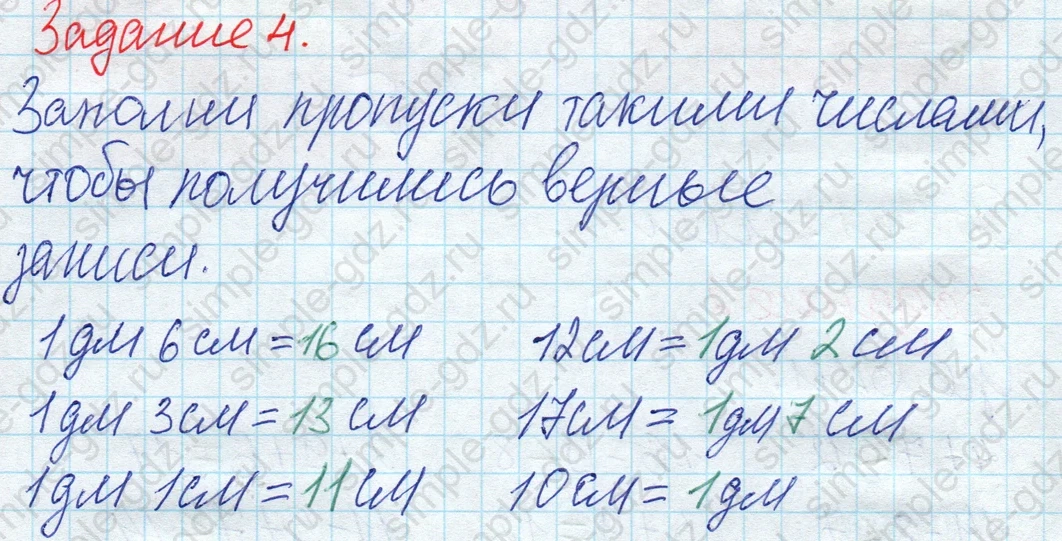 Задание 4.
Заполни пропуски такими числами,
чтобы получились верные
записи.
1дм 6см = 16см 12см = 1дм 2см
1дм 3см = 13см 17см = 1дм 7см
1дм 1см = 11см 10см = 1дм
simple-gdz.ru